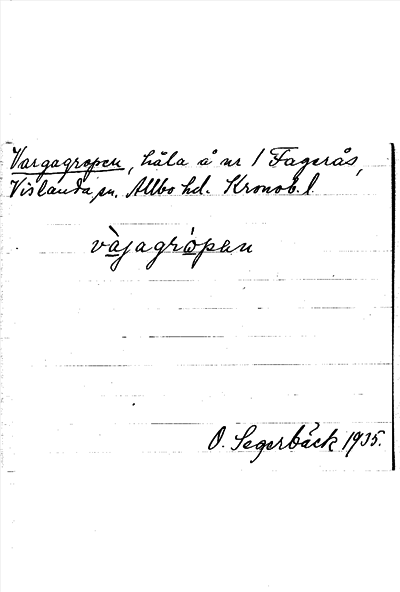 Vargagropen, håla å nr 1 Fagerås,
Vislanda sn. Allbo hd. Kronob. l.
vàjagròpen
O. Segerbäck 1935.